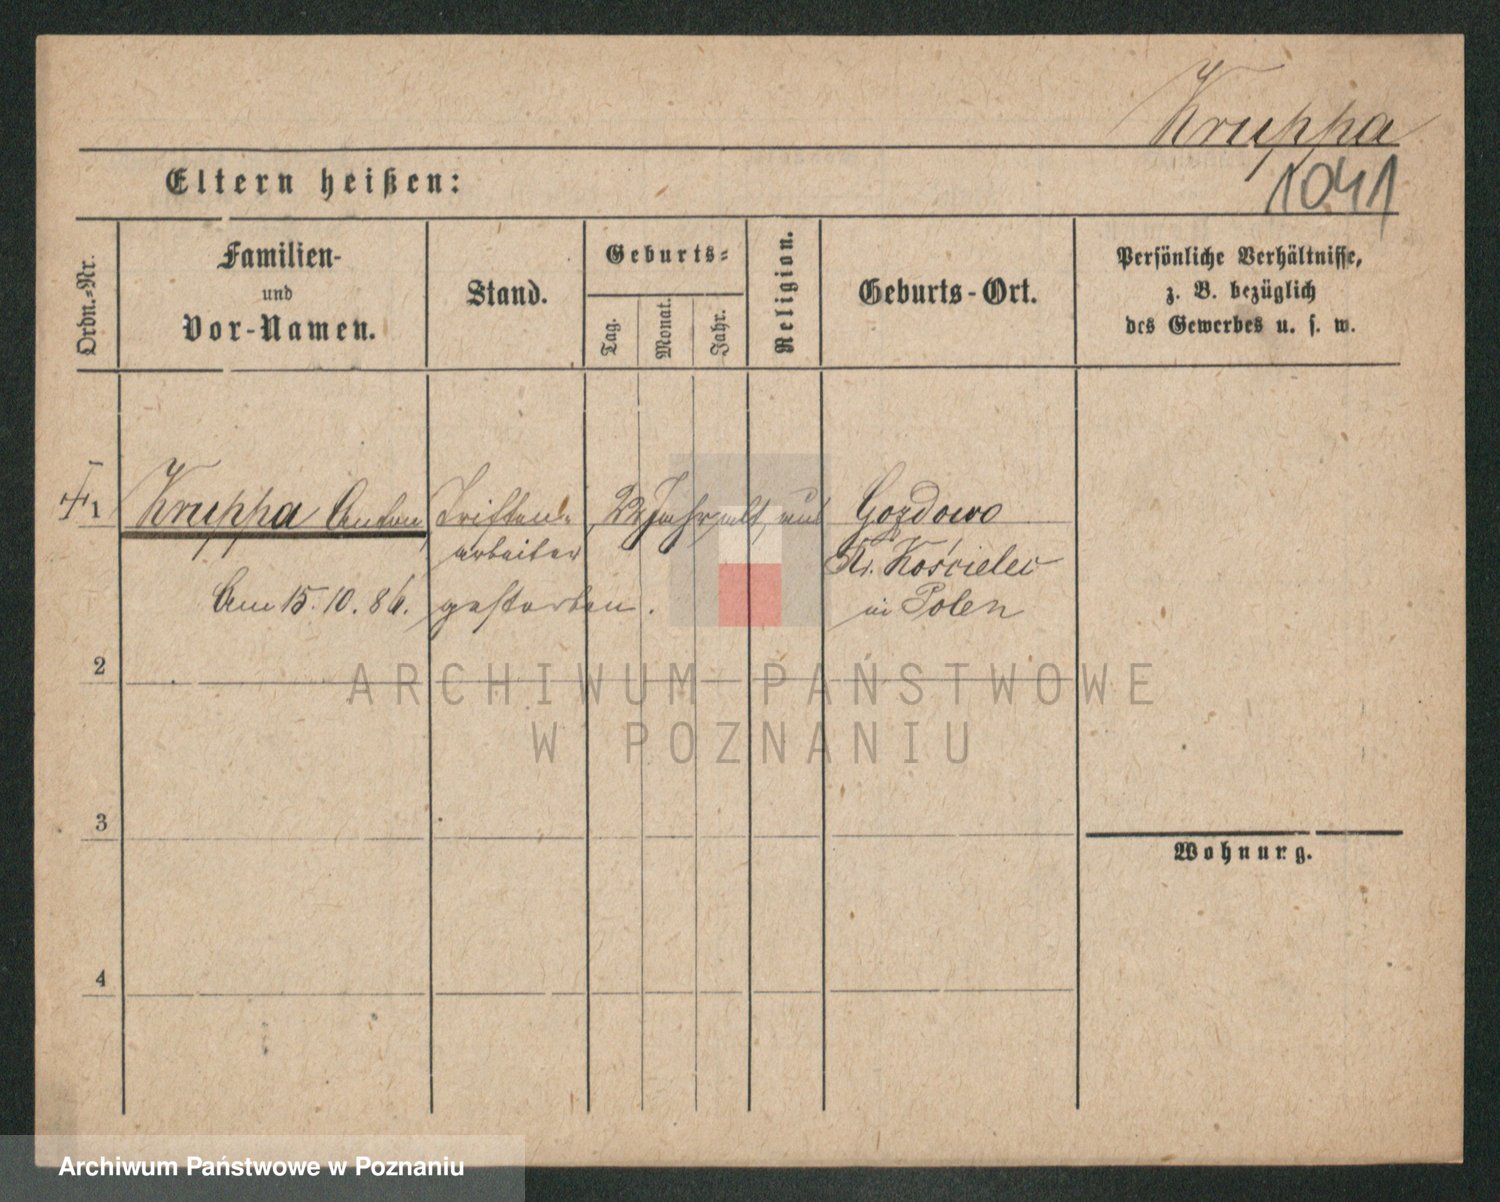 Kruppa
1041
Eltern heißen:
Ordn.-Nr.
Familien-
und
Vor-Namen.
Stand.
Geburts-
Tag.
Monat.
Jahr.
Religion.
Geburts-Ort.
Persönliche Verhältnisse,
z. B. bezüglich
des Gewerbes u. s. w.
1 Kruppa Anton, 22 Jahr alt, Gozdowo
arbeiter Kr. Kościelec
Am 15. 10. 86. gestorben. in Polen
2
ARCHIWUM PAŃSTWOWE
W POZNANIU
3
Wohnung.
4
Archiwum Państwowe w Poznaniu